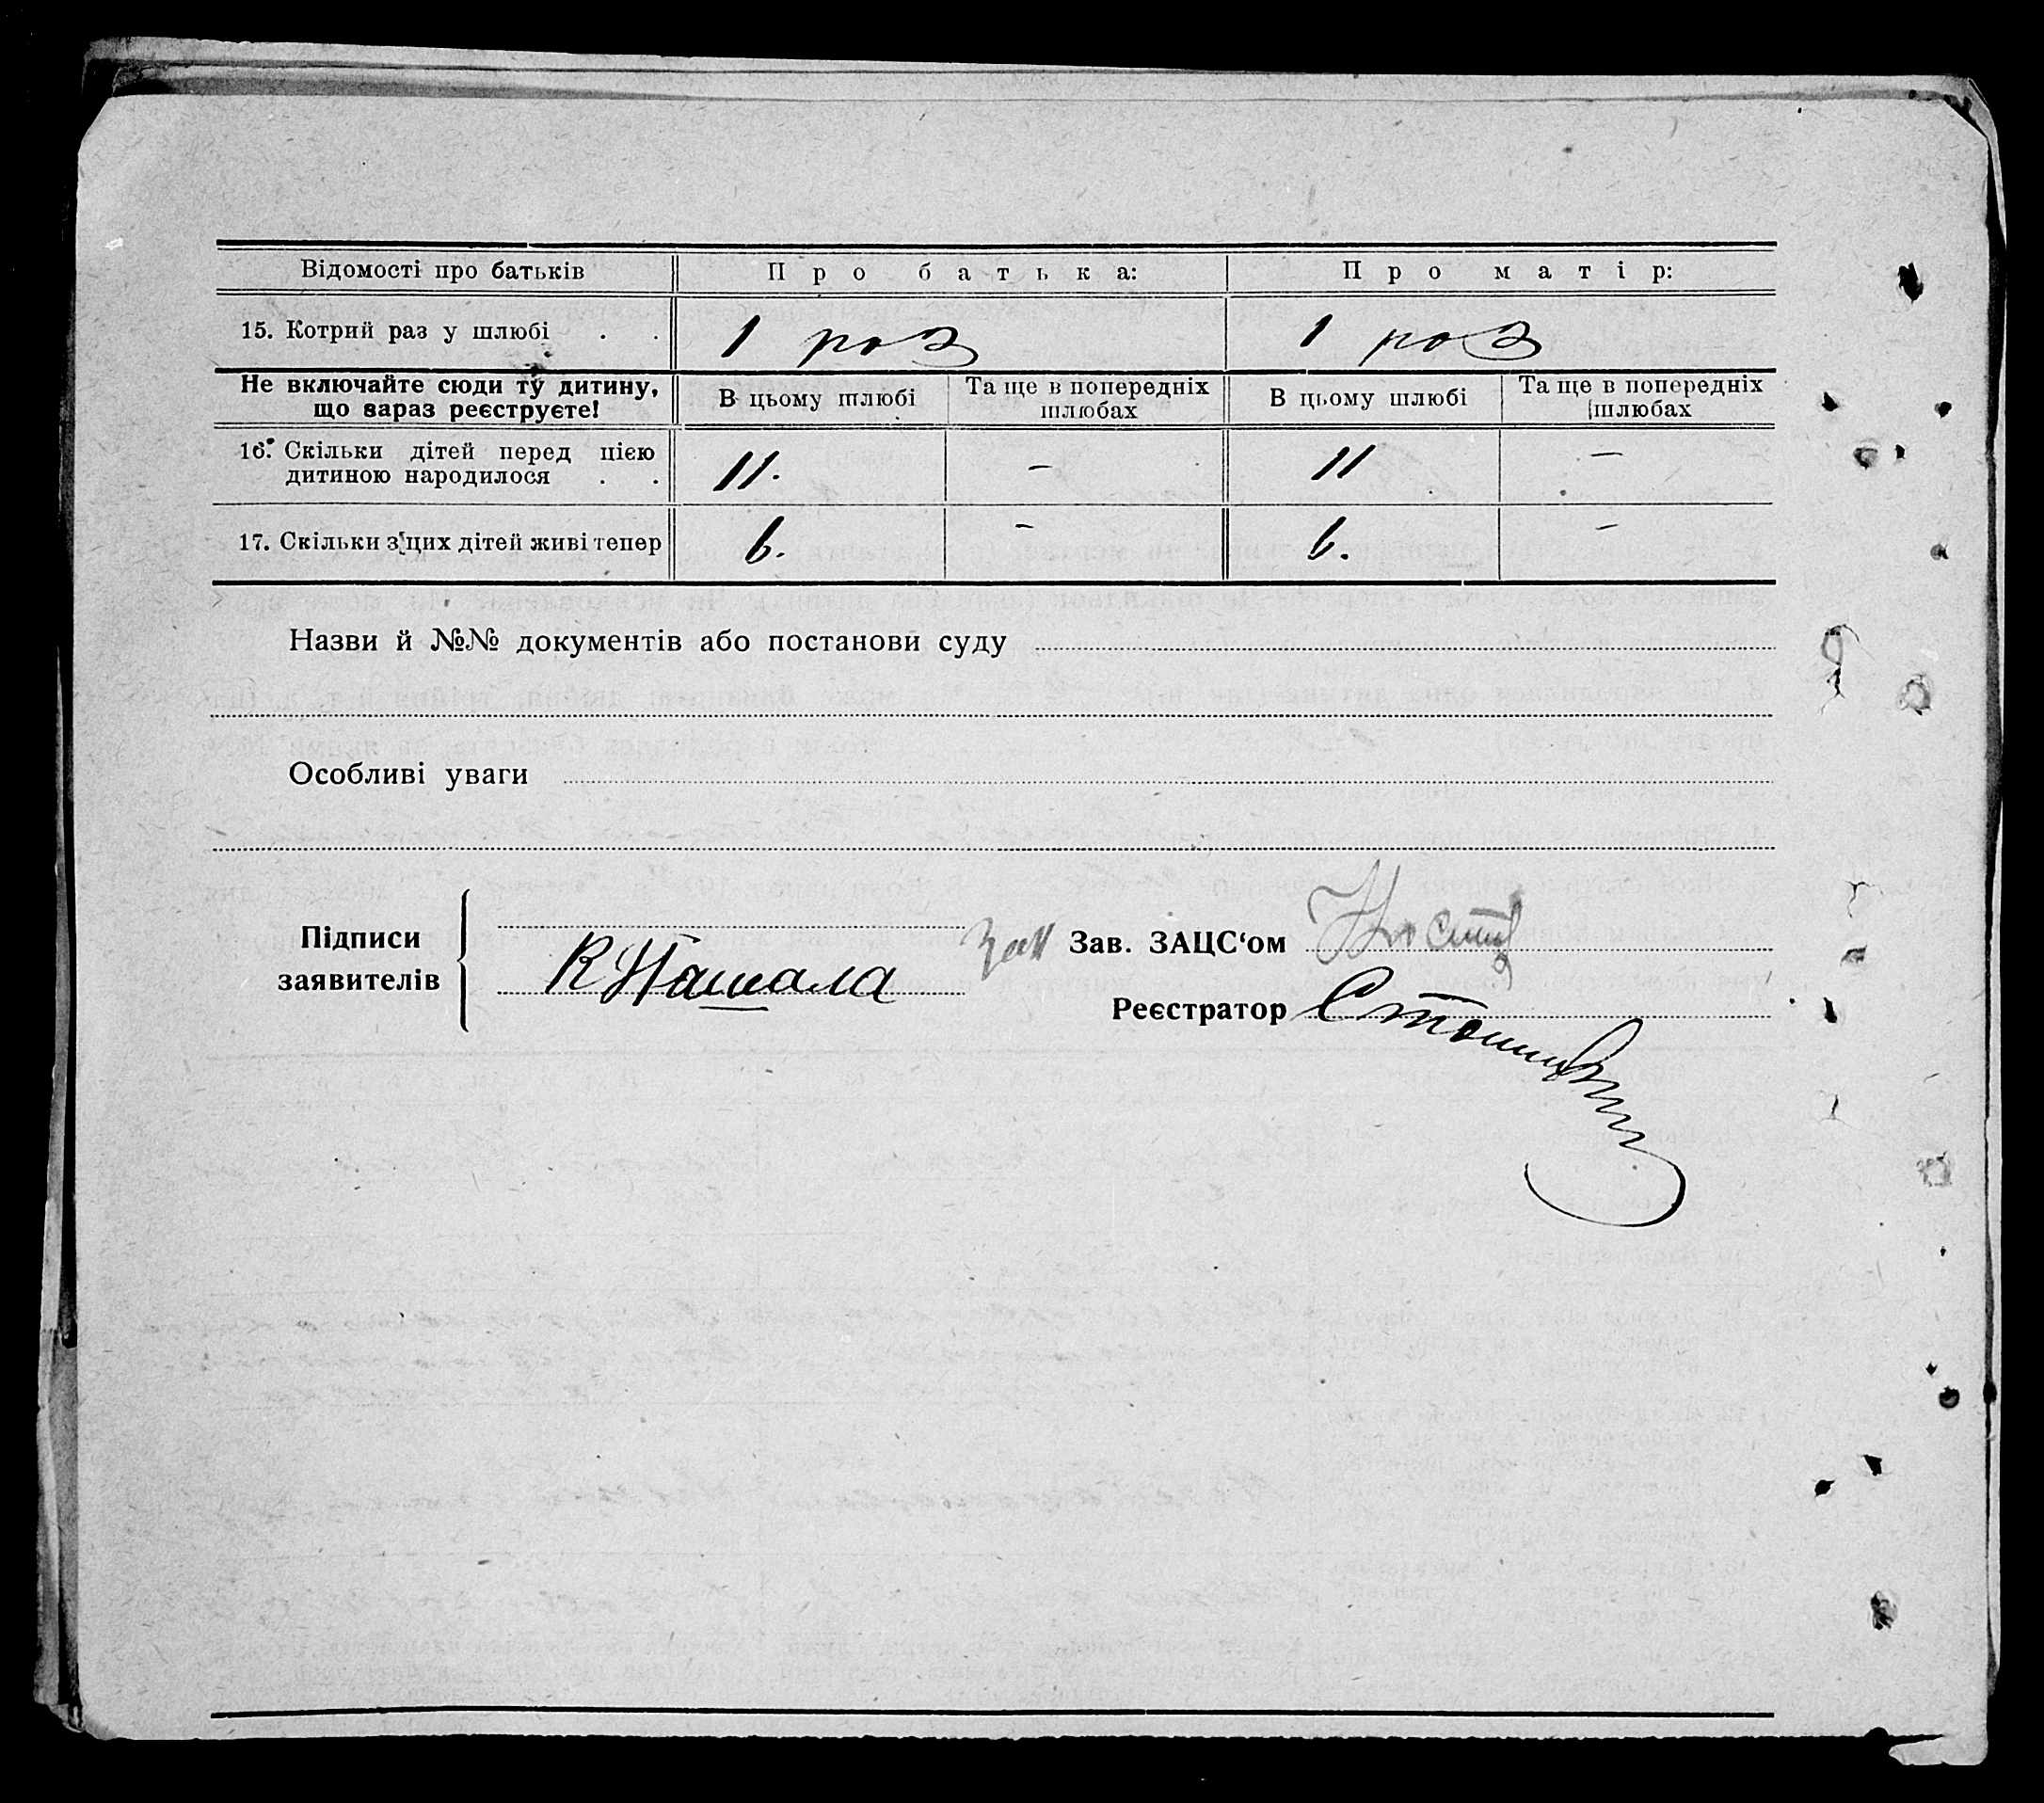 Відомості про батьків Про батька: Про матір:
15. Котрий раз у шлюбі . . 1 роз 1 роз
Не включайте сюди ту дитину, що вараз реєструєте! В цьому шлюбі Та ще в попередніх шлюбах В цьому шлюбі Та ще в попередніх шлюбах
16. Скільки дітей перед цією
дитиною народилося . . 11. — 11 —
17. Скільки з цих дітей живі тепер 6. — 6. —
Назви й №№ документів або постанови суду
Особливі уваги
Підписи
заявителів
Зав. ЗАЦС‘ом
Реєстратор